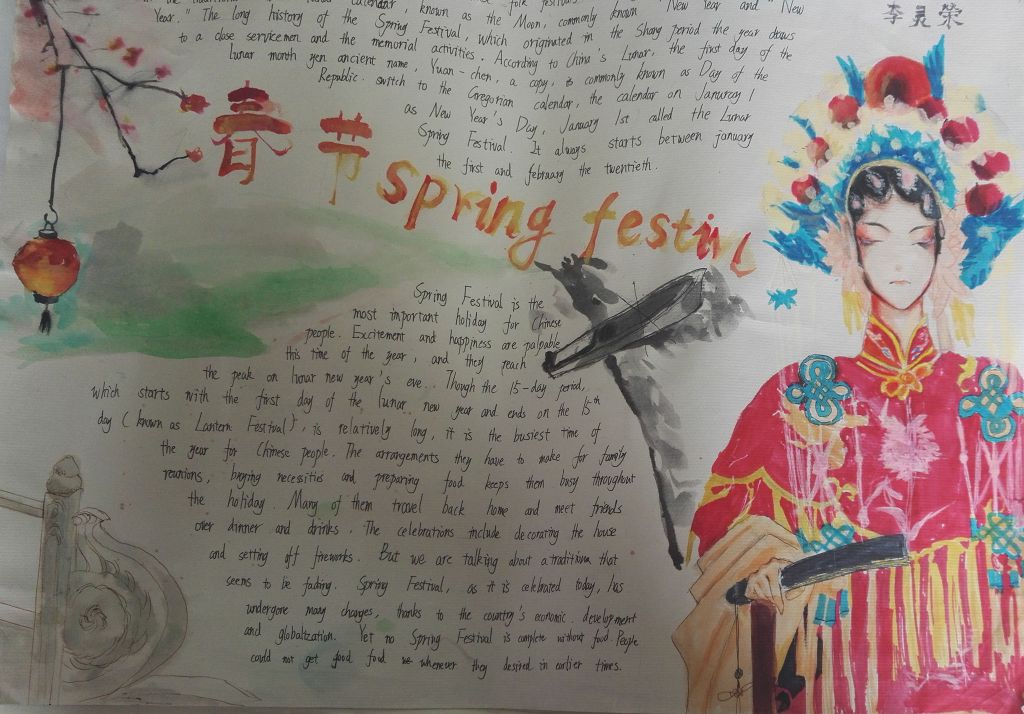 calendar, known as the Moon, commonly known "New Year" and "New
Year." The long history of the Spring Festival, which originated in the Shang period the year draws
to a close servicemen and the memorial activities. According to China's Lunar, the first day of the
lunar month yen ancient name, Yuan-chen, a copy, is commonly known as Day of the
Republic. switch to the Gregorian calendar, the calendar on January 1
as New Year's Day, January 1st called the Lunar
Spring Festival. It always starts between january
the first and february the twentieth.
李灵荣
春节 spring festivl
Spring Festival is the
most important holiday for Chinese
people. Excitement and happiness are palpable
this time of the year, and they reach
the peak on lunar new year's eve. Though the 15-day period,
which starts with the first day of the lunar new year and ends on the 15th
day (known as Lantern Festival), is relatively long, it is the busiest time of
the year for Chinese people. The arrangements they have to make for family
reunions, buying necessities and preparing food keeps them busy throughout
the holiday. Many of them travel back home and meet friends
over dinner and drinks. The celebrations include decorating the house
and setting off fireworks. But we are talking about a tradition that
seems to be fading. Spring Festival, as it is celebrated today, has
undergone many changes, thanks to the country's economic development
and globalization. Yet no Spring Festival is complete without food. People
could not get good food we whenever they desired in earlier times.